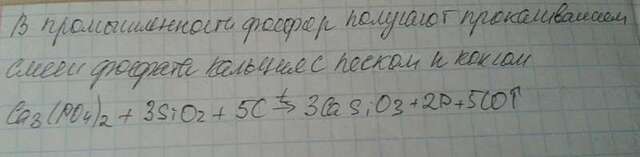 В промышленности фосфор получают прокаливанием
смеси фосфата кальция с песком и коксом
Ca3(PO4)2 + 3SiO2 + 5C t→ 3CaSiO3 + 2P + 5CO↑